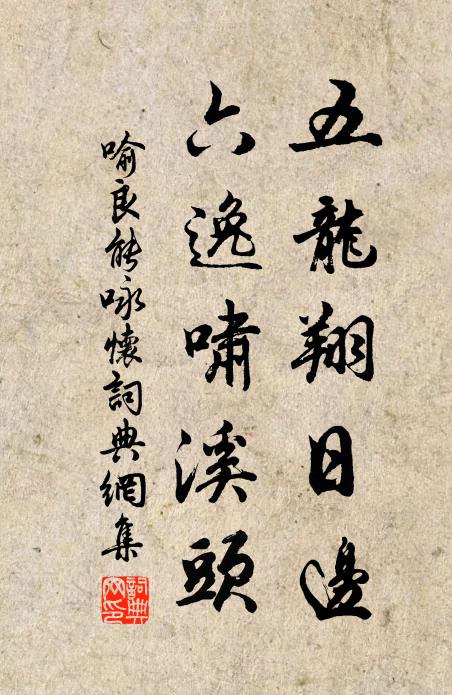 五龍翔日邊
六逸嘯溪頭
喻良能咏懷詞典網集
詞典網印